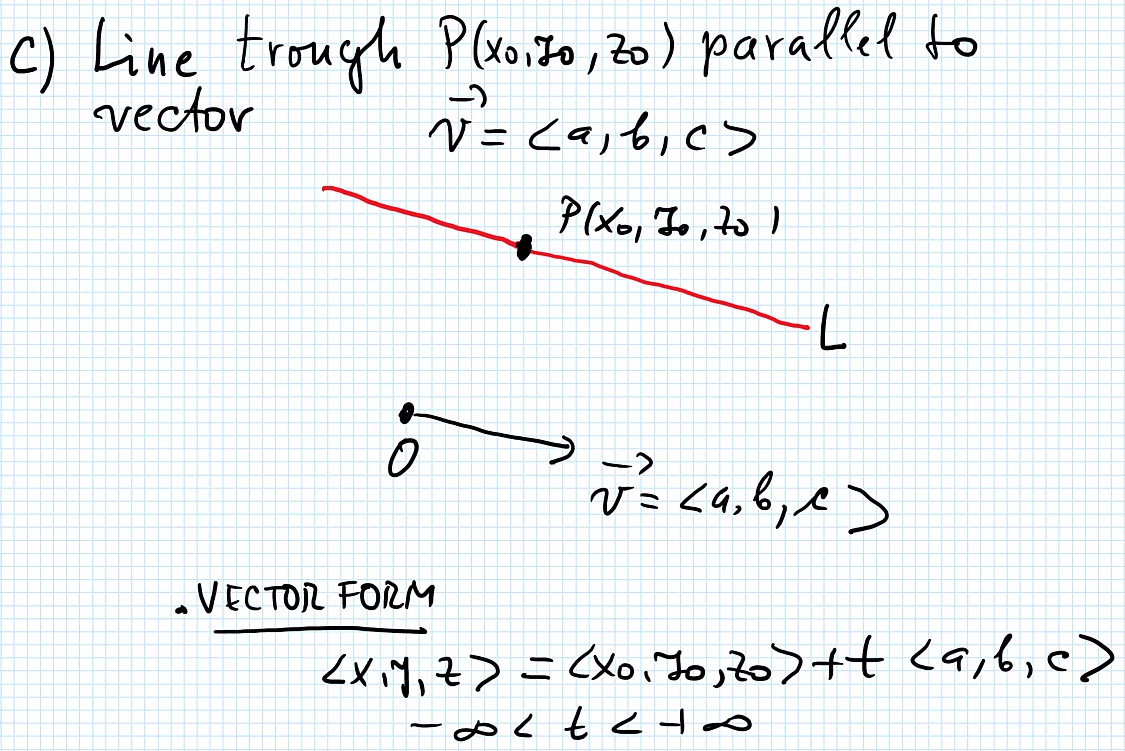 c) Line trough P(x₀,y₀,z₀) parallel to
vector
v⃗ = <a, b, c>
P(x₀, y₀, z₀)
L
O
v⃗ = <a, b, c>
. VECTOR FORM
<x, y, z> = <x₀, y₀, z₀> + t <a, b, c>
-∞ < t < +∞